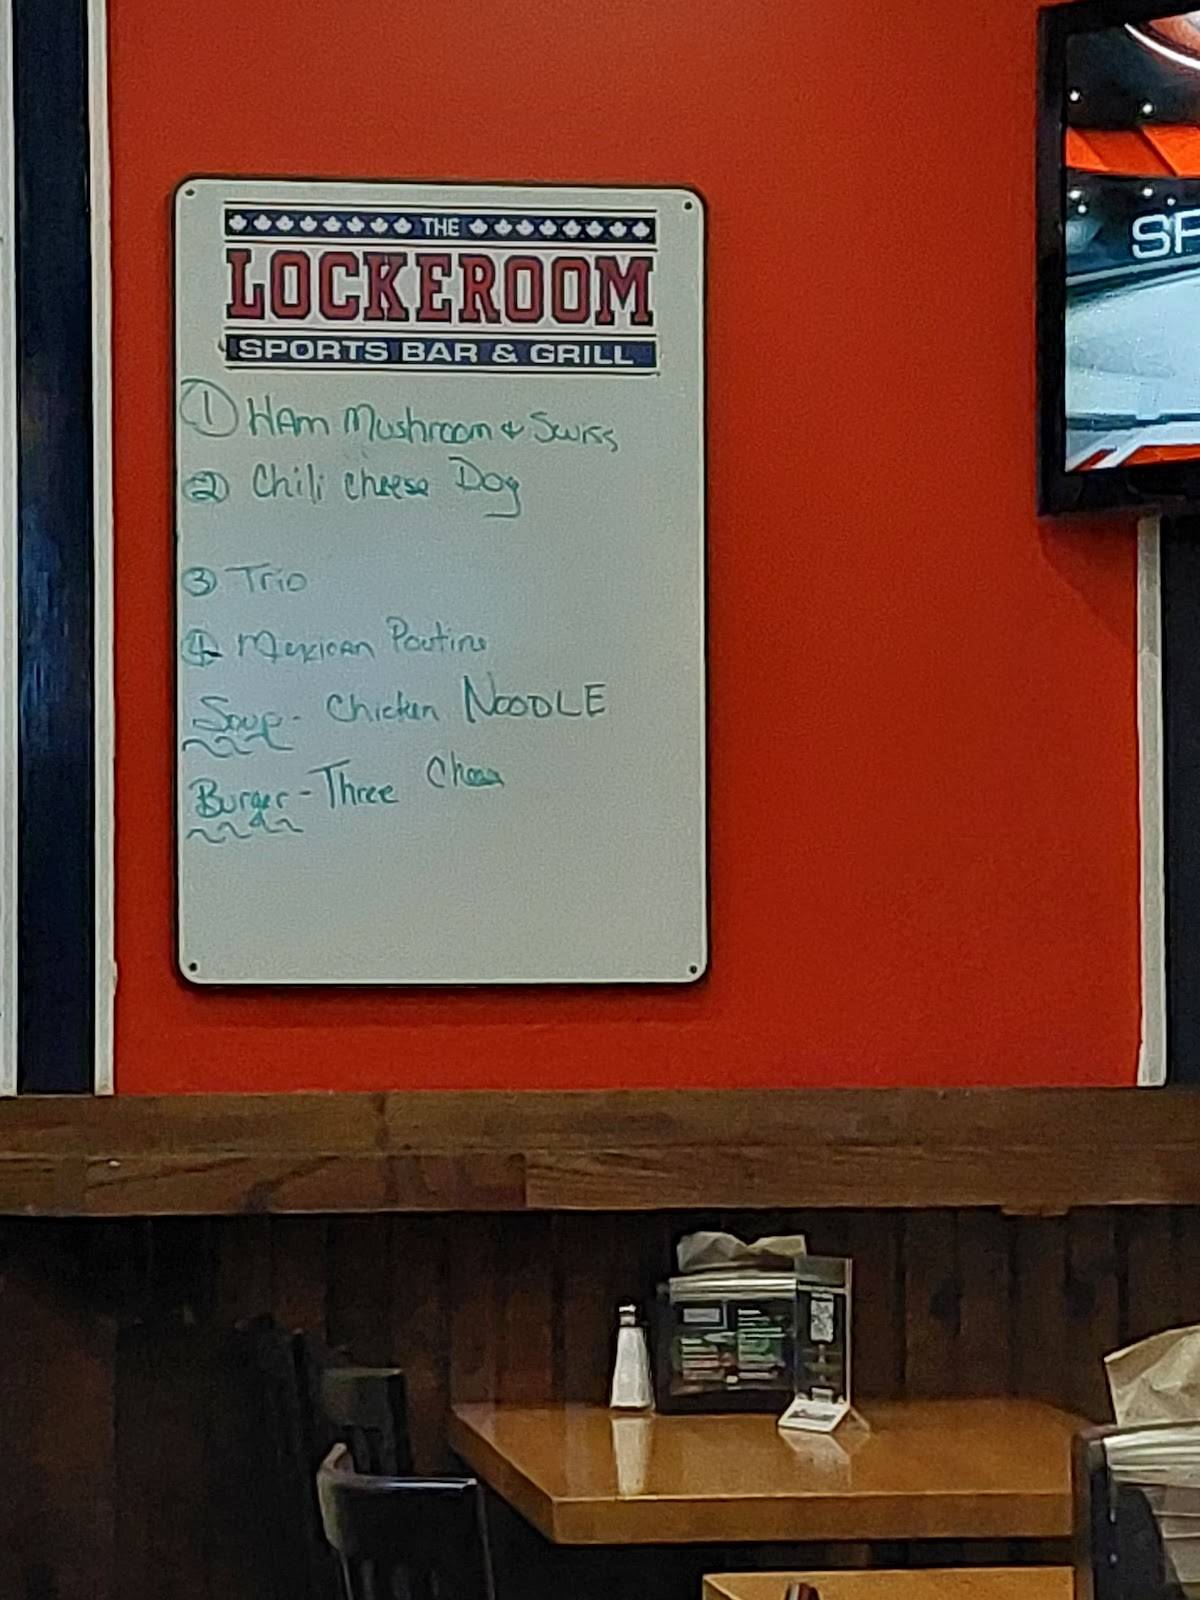 THE
LOCKEROOM
SPORTS BAR & GRILL
① HAm Mushroom & Swiss
② Chili cheese Dog
③ Trio
④ Mexican Poutine
Soup - Chicken NOODLE
Burger - Three Cheese
SP